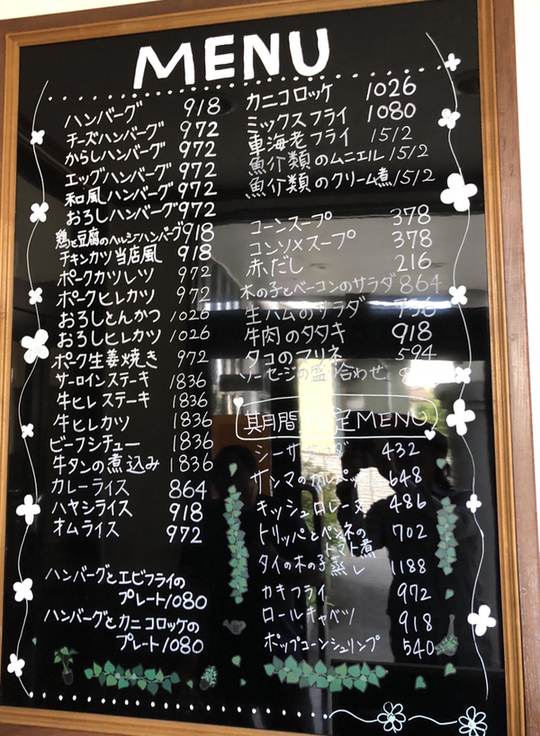 MENU
ハンバーグ 918
チーズハンバーグ 972
からしハンバーグ 972
エッグハンバーグ 972
和風ハンバーグ 972
おろしハンバーグ 972
鶏と豆腐のヘルシーハンバーグ 918
チキンカツ当店風 918
ポークカツレツ 972
ポークヒレカツ 972
おろしとんかつ 1026
おろしヒレカツ 1026
ポーク生姜焼き 972
サーロインステーキ 1836
牛ヒレステーキ 1836
牛ヒレカツ 1836
ビーフシチュー 1836
牛タンの煮込み 1836
カレーライス 864
ハヤシライス 918
オムライス 972
ハンバーグとエビフライの
プレート1080
ハンバーグとカニコロッケの
プレート1080
カニコロッケ 1026
ミックスフライ 1080
車海老フライ 1512
魚介類のムニエル 1512
魚介類のクリーム煮 1512
コーンスープ 378
コンソメスープ 378
赤だし 216
木の子とベーコンのサラダ 864
生ハムのサラダ
牛肉のタタキ 918
タコのマリネ 594
ソーセージの盛り合わせ
期間限定MENU
432
サンマのカルパッチョ 648
キッシュロレーヌ 486
トリッパとペンネの
トマト煮 702
タイの木の子蒸し 1188
カキフライ 972
ロールキャベツ 918
ポップコーンシュリンプ 540